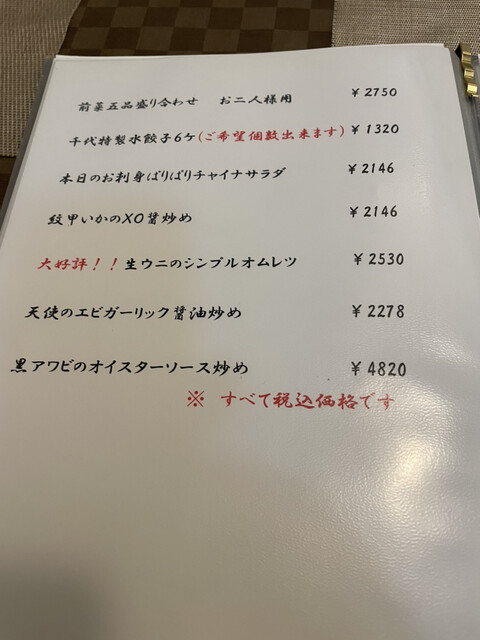 前菜五品盛り合わせ お二人様用 ¥2750
千代特製水餃子6ケ(ご希望個数出来ます) ¥1320
本日のお刺身ぱりぱりチャイナサラダ ¥2146
紋甲いかのXO醤炒め ¥2146
大好評!!生ウニのシンプルオムレツ ¥2530
天使のエビガーリック醤油炒め ¥2278
黒アワビのオイスターソース炒め ¥4820
※ すべて税込価格です